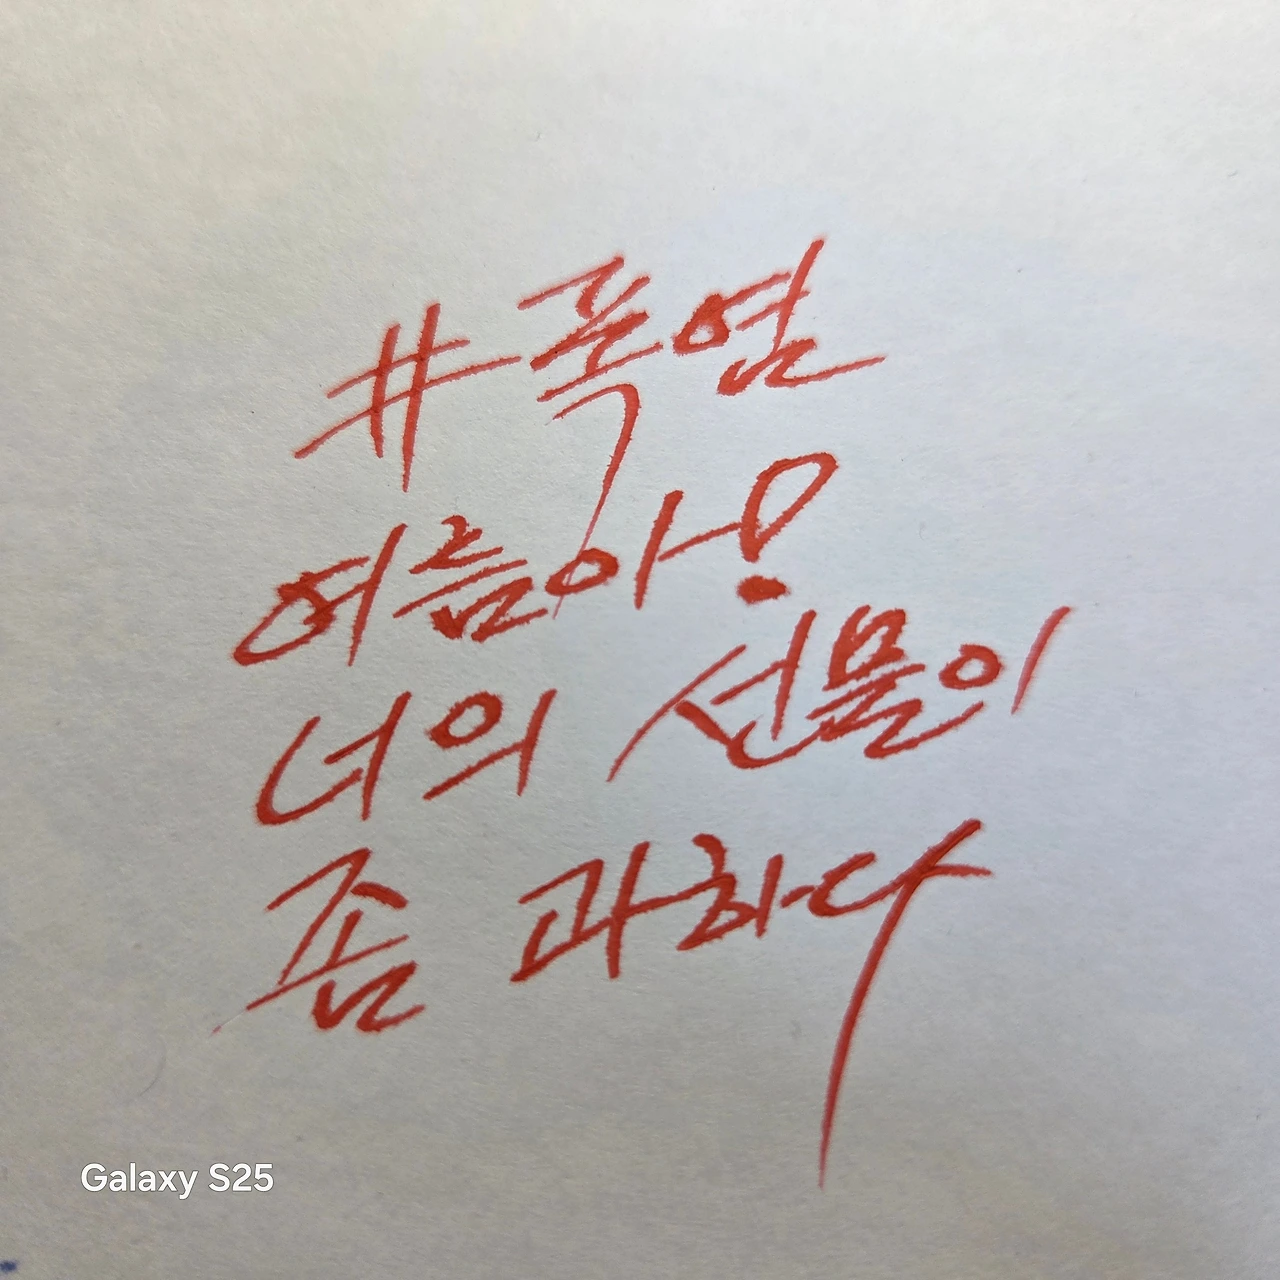 #폭염
여름아!
너의 선물이
좀 과하다
Galaxy S25